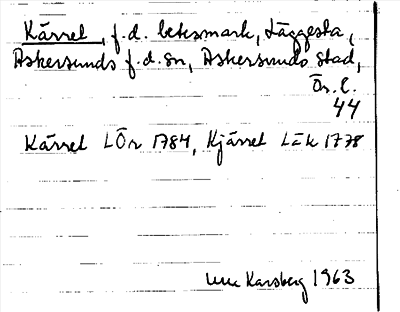 Kärret, f.d. betesmark, Läggesta,
Askersunds f.d. sn, Askersunds stad,
Ör. l.
44
Kärret LÖr 1784, Kjärret LÄk 1778
Karsberg 1963